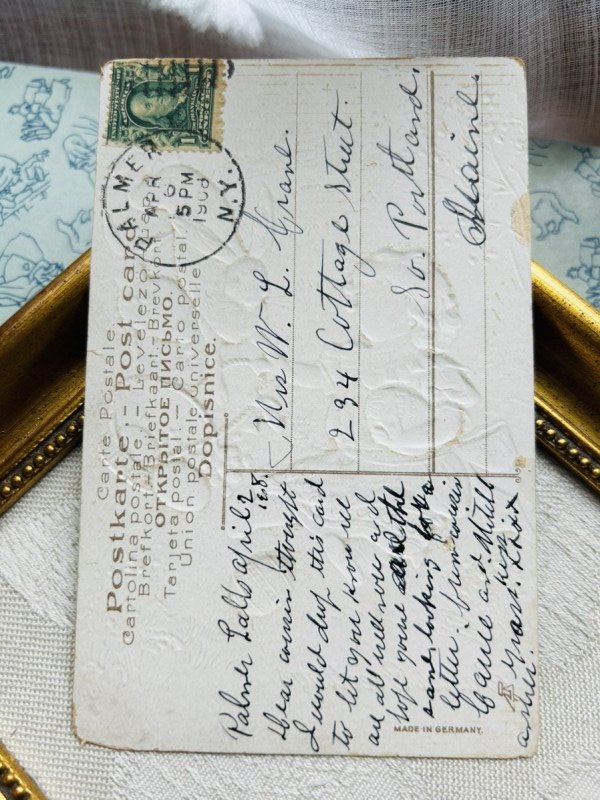 Carte Postale
Postkarte. - Post card
Cartolina postale. - Levelező-
Brefkort.-Briefkaart.-Brevkort
ОТКРЫТОЕ ПИСЬМО.
Tarjeta postal. - Carto postal
Union postale universelle
Dopisnice.
PALMER N.Y.
APR
6
5 PM
Mrs W. L. Grant.
234 Cottage Street.
So. Portland.
Maine.
Palmer Falls april 2
Dear cousin thought
I would drop this card
to let you know we
are all well now and
hope you are the
same looking for a
letter. from cousin
and
kiss
xxxx
MADE IN GERMANY.